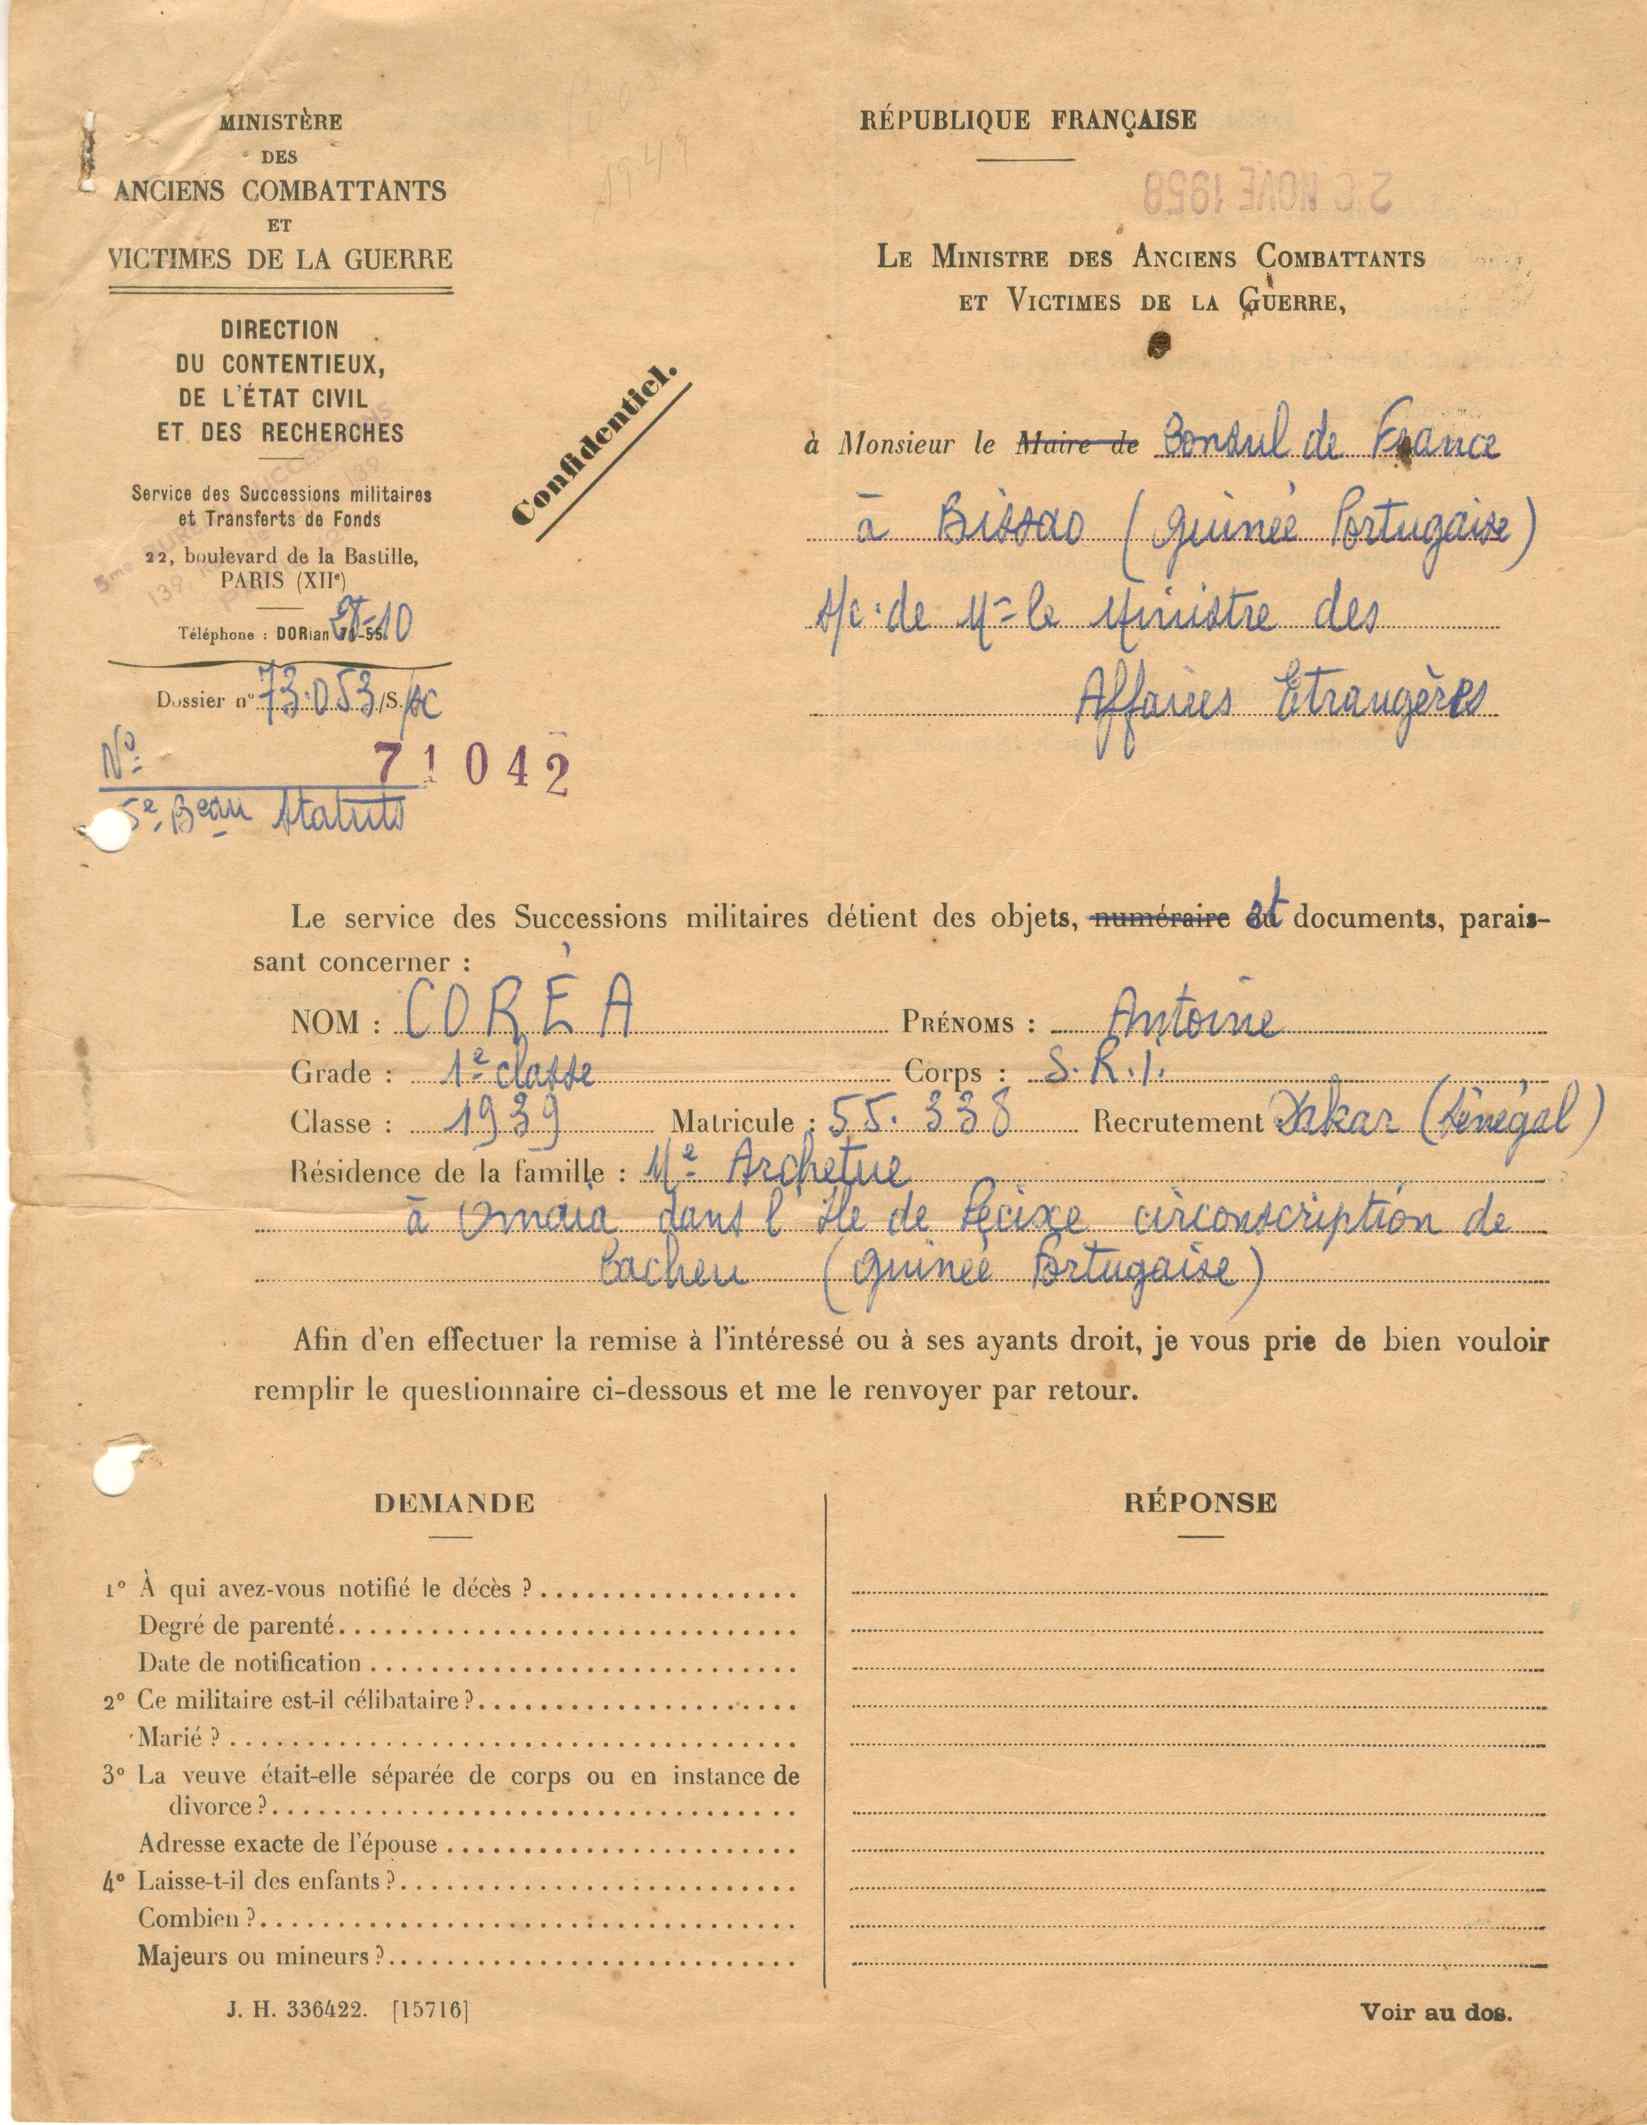 MINISTÈRE
DES
ANCIENS COMBATTANTS
ET
VICTIMES DE LA GUERRE
DIRECTION
DU CONTENTIEUX,
DE L'ÉTAT CIVIL
ET DES RECHERCHES
Service des Successions militaires
et Transferts de Fonds
22, boulevard de la Bastille,
PARIS (XIIe)
Téléphone : DORian
Dossier n° 73.053/S.
N° 71042
5e Beau Statuts
Confidentiel.
1949
RÉPUBLIQUE FRANÇAISE
NOVE 1958
LE MINISTRE DES ANCIENS COMBATTANTS
ET VICTIMES DE LA GUERRE,
à Monsieur le Maire de Consul de France
à Bissao (Guinée Portugaise)
s/c de Mr le Ministre des
Affaires Etrangères
Le service des Successions militaires détient des objets, numéraire et documents, parais-
sant concerner :
NOM : CORÉA PRÉNOMS : Antoine
Grade : 1e classe Corps : S.R.I.
Classe : 1939 Matricule : 55.338 Recrutement Dakar (Sénégal)
Résidence de la famille : Me Archetue
à Omaia dans l'Ile de Pecixe circonscription de
Cacheu (Guinée Portugaise)
Afin d'en effectuer la remise à l'intéressé ou à ses ayants droit, je vous prie de bien vouloir
remplir le questionnaire ci-dessous et me le renvoyer par retour.
DEMANDE RÉPONSE
1° À qui avez-vous notifié le décès ?
Degré de parenté
Date de notification
2° Ce militaire est-il célibataire ?
Marié ?
3° La veuve était-elle séparée de corps ou en instance de
divorce ?
Adresse exacte de l'épouse
4° Laisse-t-il des enfants ?
Combien ?
Majeurs ou mineurs ?
J. H. 336422. [15716]
Voir au dos.